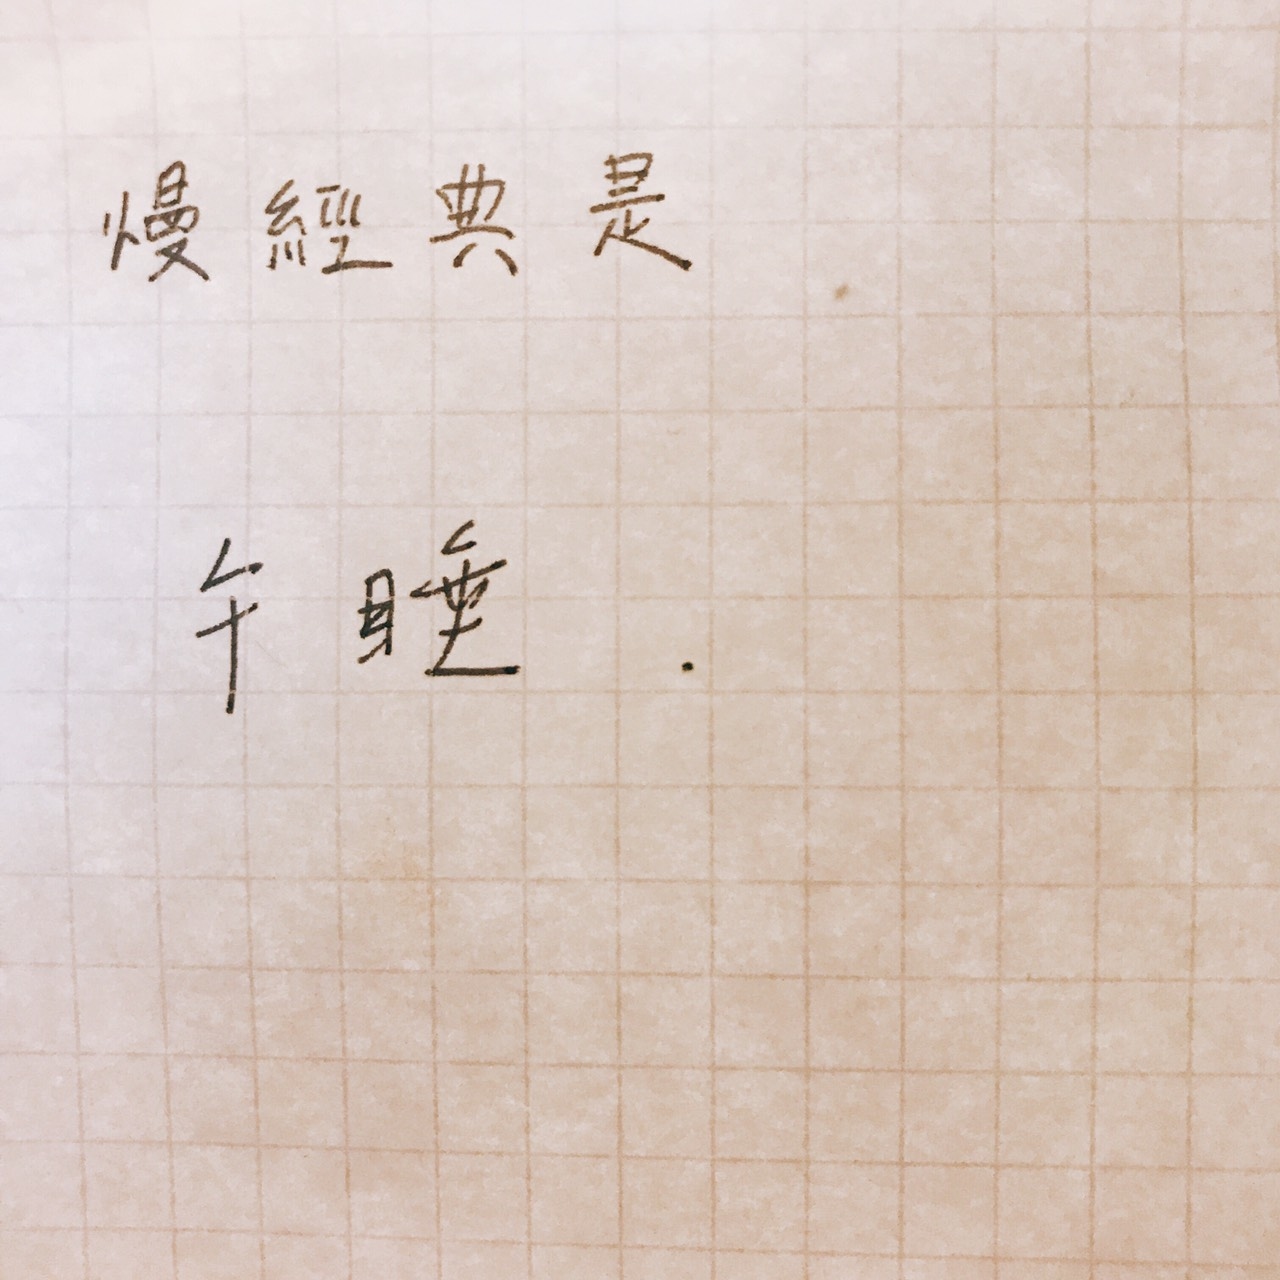 慢經典是
午睡.